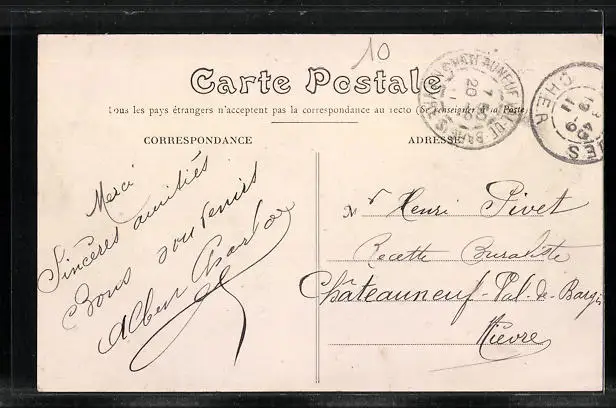 10
Carte Postale
Tous les pays étrangers n'acceptent pas la correspondance au recto (Se renseigner à la Poste)
CORRESPONDANCE
ADRESSE
Merci
Sincères amitiés
Bons souvenirs
Albert
Mr Henri Pivet
Recette Buraliste
Châteauneuf-Val-de-Bargis
Nièvre
CHATEAUNEUF
20
CHER